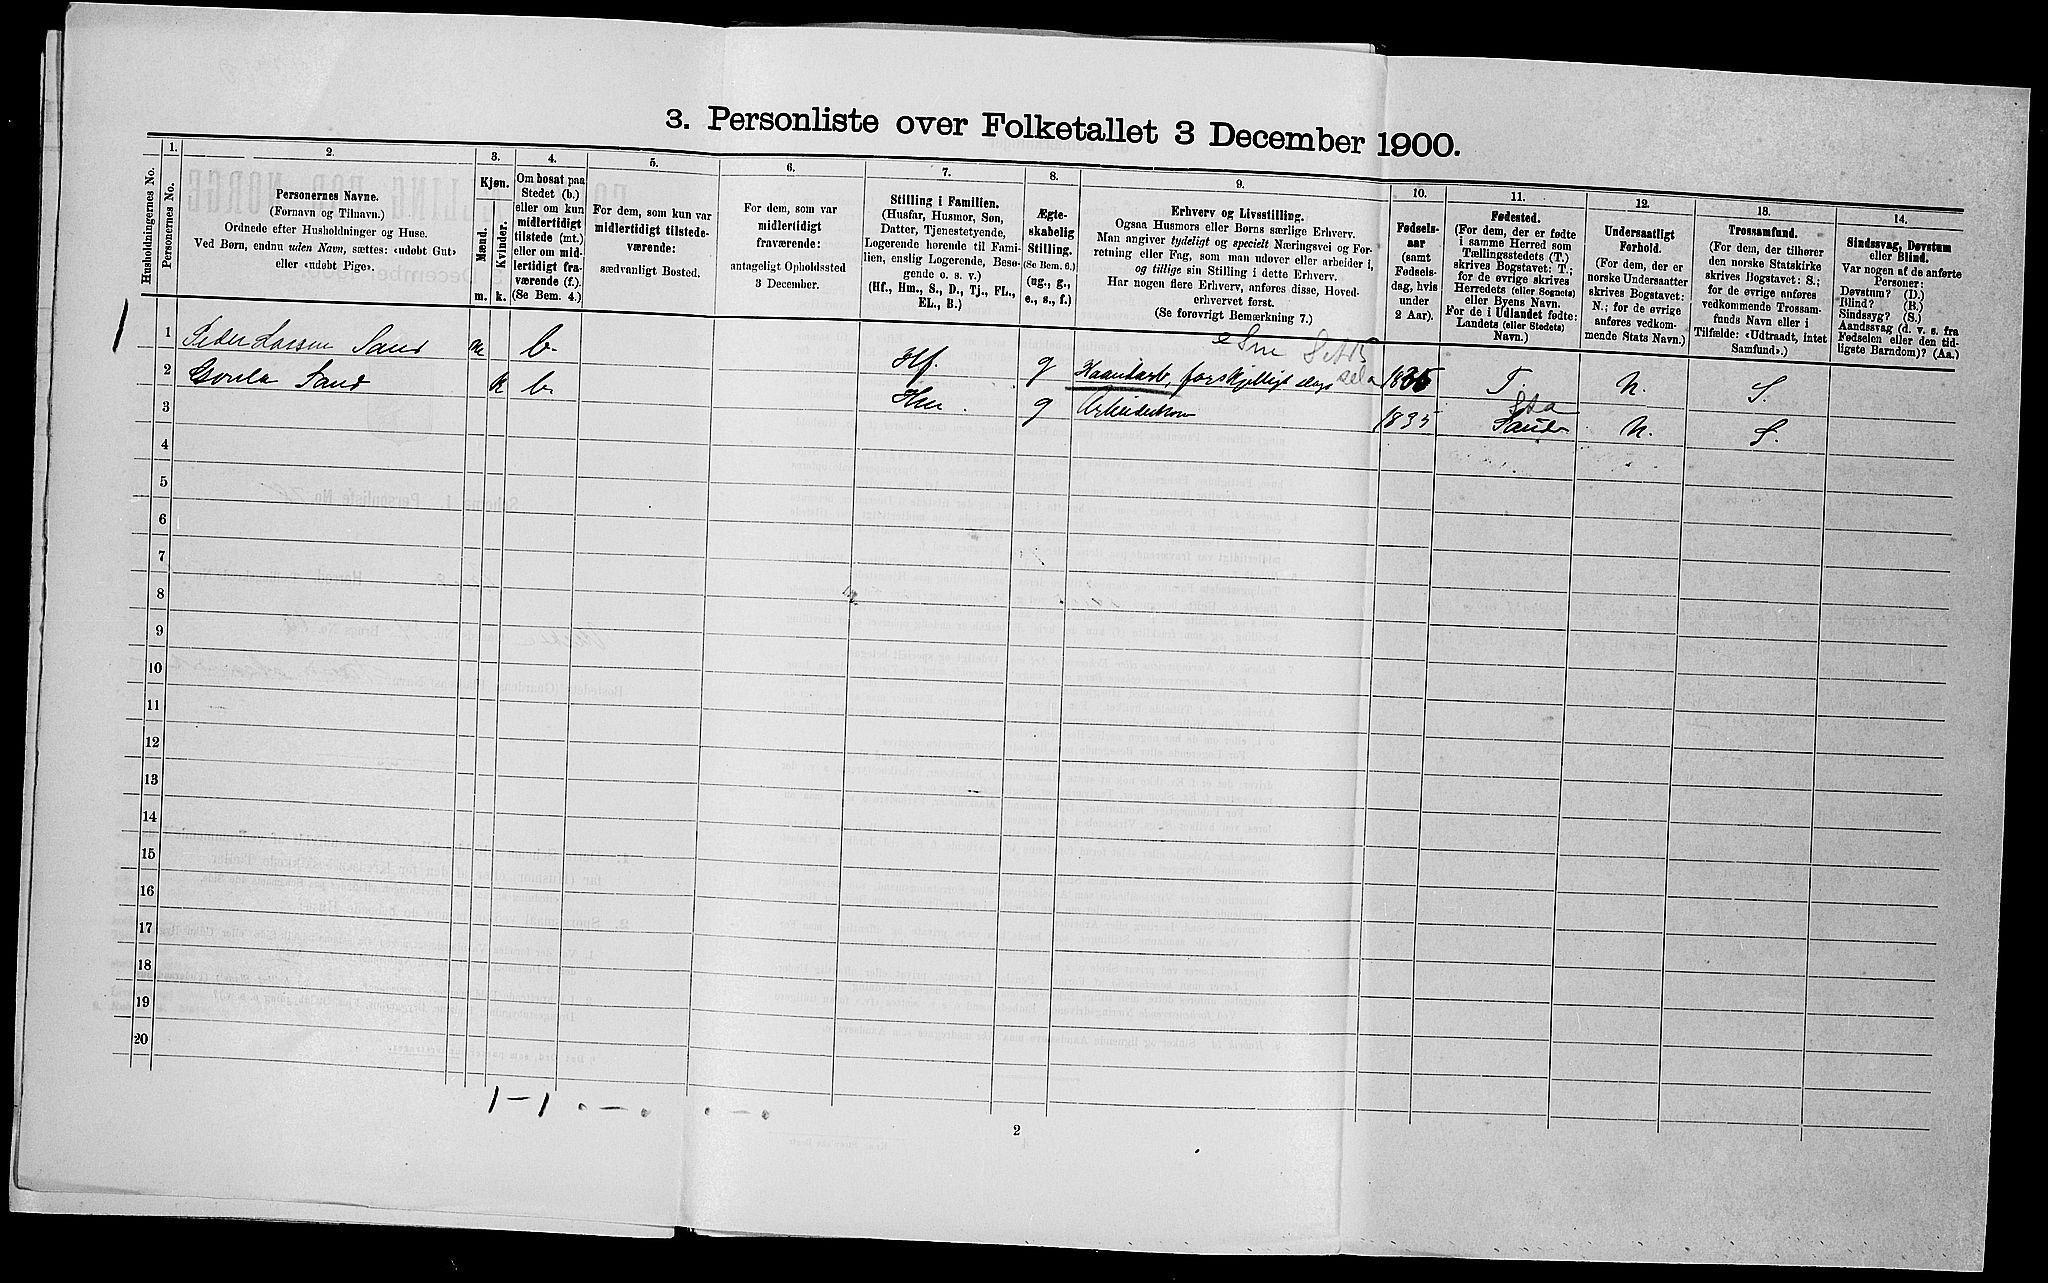 3. Personliste over Folketallet 3 December 1900.
Husholdningernes No.
1.
Personernes No.
2.
Personernes Navne.
(Fornavn og Tilnavn.)
Ordnede efter Husholdninger og Huse.
Ved Børn, endnu uden Navn, sættes: «udøbt Gut»
eller «udøbt Pige».
3.
Kjøn.
Mænd.
Kvinder.
m.
k.
4.
Om bosat paa
Stedet (b.)
eller om kun
midlertidigt
tilstede (mt.)
eller om mid-
lertidigt fra-
værende (f.).
(Se Bem. 4.)
5.
For dem, som kun var
midlertidigt tilstede-
værende:
sædvanligt Bosted.
6.
For dem, som var
midlertidigt
fraværende:
antageligt Opholdssted
3 December.
7.
Stilling i Familien.
(Husfar, Husmor, Søn,
Datter, Tjenestetyende,
Logerende hørende til Fami-
lien, enslig Logerende, Besø-
gende o. s. v.)
(Hf., Hm., S., D., Tj., FL.,
EL., B.)
8.
Ægte-
skabelig
Stilling.
(Se Bem. 6.)
(ug., g.,
e., s., f.)
9.
Erhverv og Livsstilling.
Ogsaa Husmors eller Børns særlige Erhverv.
Man angiver tydeligt og specielt Næringsvei og For-
retning eller Fag, som man udøver eller arbeider i,
og tillige sin Stilling i dette Erhverv.
Har nogen flere Erhverv, anføres disse, Hoved-
erhvervet først.
(Se forøvrigt Bemærkning 7.)
10.
Fødsels-
aar
(samt
Fødsels-
dag, hvis
under
2 Aar).
11.
Fødested.
(For dem, der er fødte
i samme Herred som
Tællingsstedets (T.)
skrives Bogstavet: T.;
for de øvrige skrives
Herredets (eller Sognets)
eller Byens Navn.
For de i Udlandet fødte:
Landets (eller Stedets)
Navn.)
12.
Undersaatligt
Forhold.
(For dem, der er
norske Undersaatter
skrives Bogstavet:
N.; for de øvrige
anføres vedkom-
mende Stats Navn.)
13.
Trossamfund.
(For dem, der tilhører
den norske Statskirke
skrives Bogstavet: S.;
for de øvrige anføres
vedkommende Trossam-
funds Navn eller i
Tilfælde: «Udtraadt, intet
Samfund».)
14.
Sindssvag, Døvstum
eller Blind.
Var nogen af de anførte
Personer:
Døvstum? (D.)
Blind? (B.)
Sindssyg? (S.)
Aandssvag (d. v. s. fra
Fødselen eller den tid-
ligste Barndom)? (Aa.)
1 1 Peder Larsen Sand m b. Hf. g Haandarb, forskjelligt slags 1835 T. N. S.
2 Gonla Sand k b. Hm. g Arbeiderkone 1835 Sande N. S.
3
4
5
6
7
8
9
10
11
12
13
14
15
16
17
18
19
20
1 – 1 . – . . – .
2